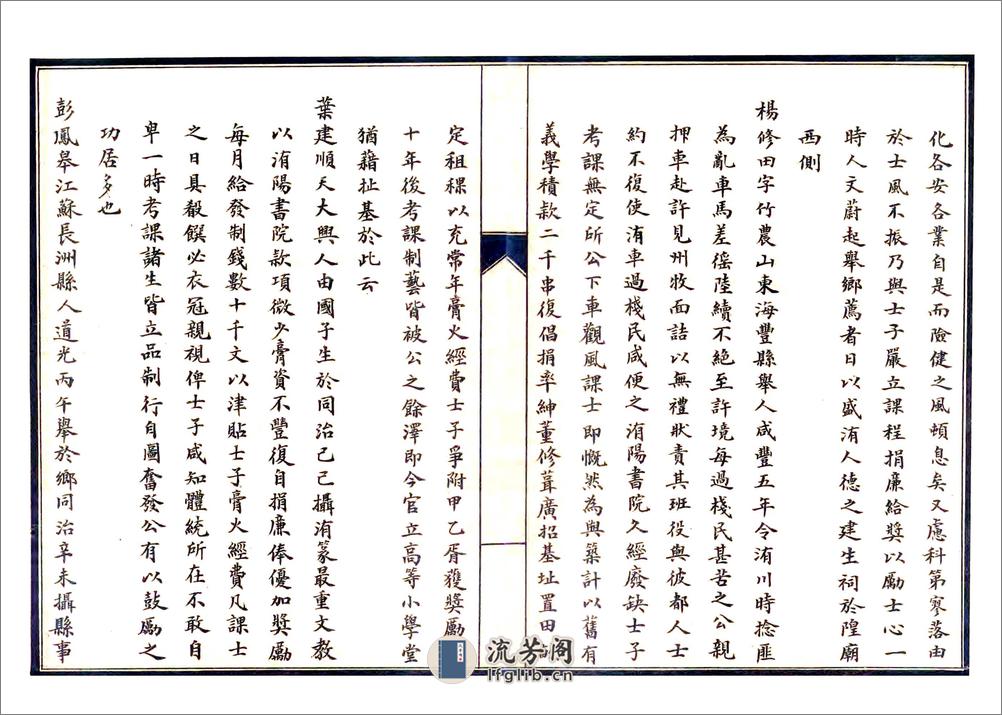 化各安各業自是而險健之風頓息矣又慮科第寥落由
於士風不振乃與士子嚴立課程捐廉給獎以勵士心一
時人文蔚起舉鄉薦者日以盛洧人德之建生祠於隍廟
西側
楊修田字竹農山東海豐縣舉人咸豐五年令洧川時捻匪
為亂車馬差徭陸續不絕至許境每過棧民甚苦之公親
押車赴許見州牧面詰以無禮狀責其班役與彼都人士
約不復使洧車過棧民咸便之洧陽書院久經廢缺士子
考課無定所公下車觀風課士即慨然為興築計以舊有
義學積款二千串復倡捐率紳董修葺廣招基址置田
定租稞以充常年膏火經費士子爭附甲乙胥獲獎勵
十年後考課制藝皆被公之餘澤即今官立高等小學堂
猶藉扯基於此云
葉建順天大興人由國子生於同治己巳攝洧篆最重文教
以洧陽書院款項微少膏資不豐復自捐廉俸優加獎勵
每月給發制錢數十千文以津貼士子膏火經費凡課士
之日具殽饌必衣冠親視俾士子咸知體統所在不敢自
卑一時考課諸生皆立品制行自圖奮發公有以鼓勵之
功居多也
彭鳳皋江蘇長洲縣人道光丙午舉於鄉同治辛未攝縣事
流芳阁
lfglib.cn